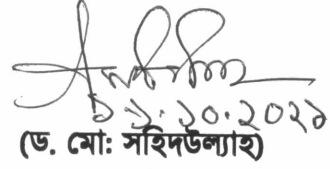 ১১.১০.২০২১
(ড. মো: সহিদউল্যাহ)